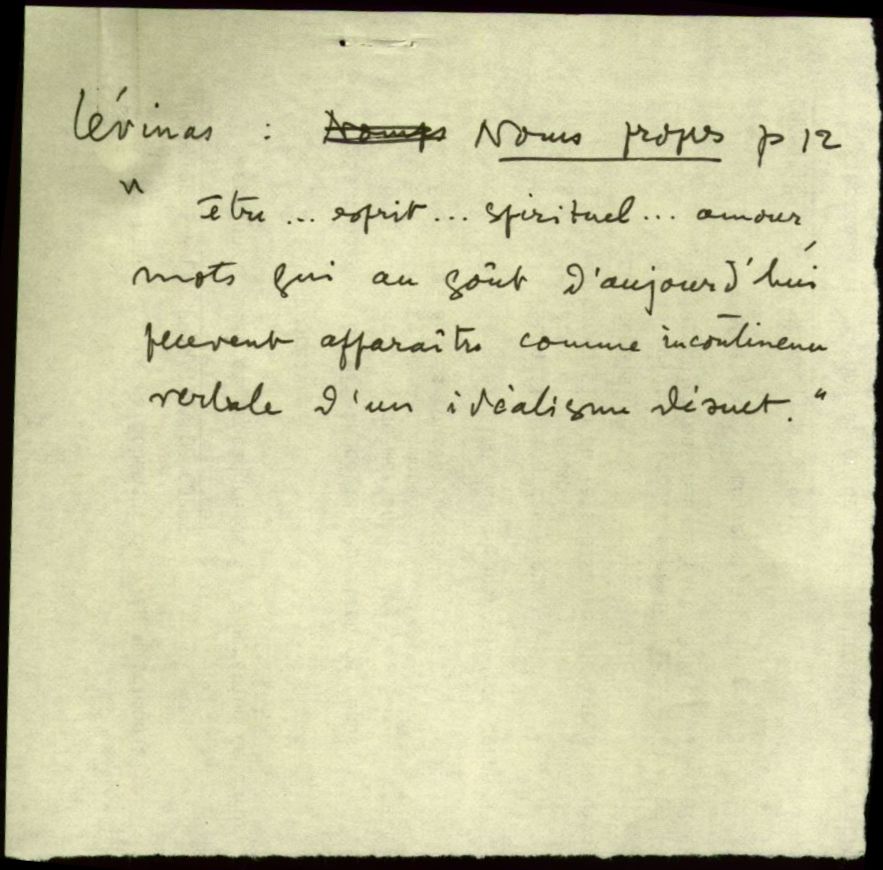 Lévinas : Noms propres p 12
" être ... esprit ... spirituel ... amour
mots qui au goût d'aujourd'hui
peuvent apparaître comme incontinence
verbale d'un idéalisme désuet. "